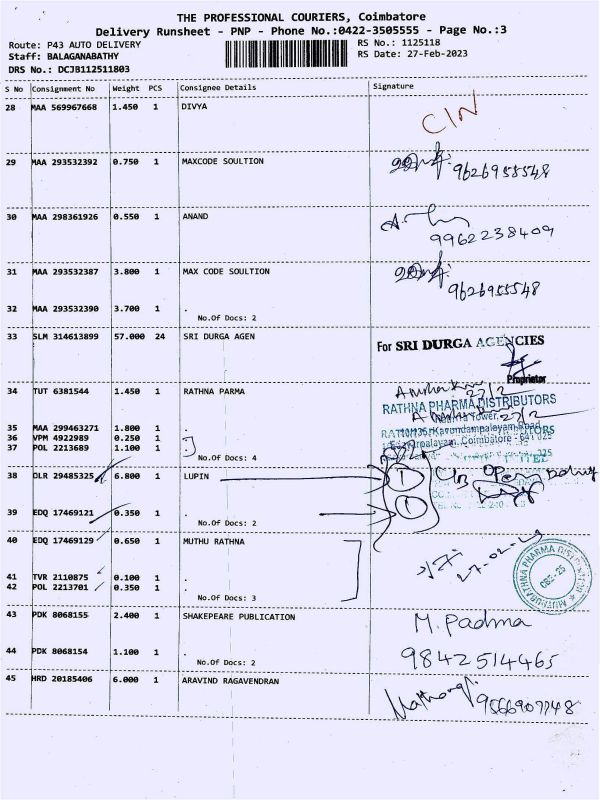 THE PROFESSIONAL COURIERS, Coimbatore
Delivery Runsheet - PNP - Phone No.:0422-3505555 - Page No.:3
Route: P43 AUTO DELIVERY RS No.: 1125118
Staff: BALAGANABATHY RS Date: 27-Feb-2023
DRS No.: DCJB112511803
S No Consignment No Weight PCS Consignee Details Signature
28 MAA 569967668 1.450 1 DIVYA
29 MAA 293532392 0.750 1 MAXCODE SOULTION
9626955548
30 MAA 298361926 0.550 1 ANAND
9962238409
31 MAA 293532387 3.800 1 MAX CODE SOULTION
9626955548
32 MAA 293532390 3.700 1 .
No.Of Docs: 2
33 SLM 314613899 57.000 24 SRI DURGA AGEN
For SRI DURGA AGENCIES
Proprietor
34 TUT 6381544 1.450 1 RATHNA PARMA
27/2
RATHNA PHARMA DISTRIBUTORS
27/2
35 MAA 299463271 1.800 1 .
36 VPM 4922989 0.250 1
37 POL 2213689 1.100 1 .
Coimbatore - 641 025
No.Of Docs: 4
38 DLR 29485325 6.800 1 LUPIN
1
39 EDQ 17469121 0.350 1 .
1
No.Of Docs: 2
40 EDQ 17469129 0.650 1 MUTHU RATHNA
27-02-23
MUTHURATHNA PHARMA DISTRIBUTOR
CBE-25
41 TVR 2110875 0.100 1 .
42 POL 2213701 0.350 1 .
No.Of Docs: 3
43 PDK 8068155 2.400 1 SHAKEPEARE PUBLICATION
M. Padma
44 PDK 8068154 1.100 1 .
9842514465
No.Of Docs: 2
45 HRD 20185406 6.000 1 ARAVIND RAGAVENDRAN